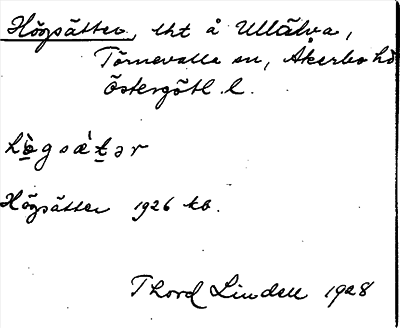 Högsätter, lht å Ullälva,
Törnevalla sn, Åkerbo hd
Östergötl. l.
hò̱gsæ̀ṯər
Högsätter 1926 kb.
Thord Lindell 1928